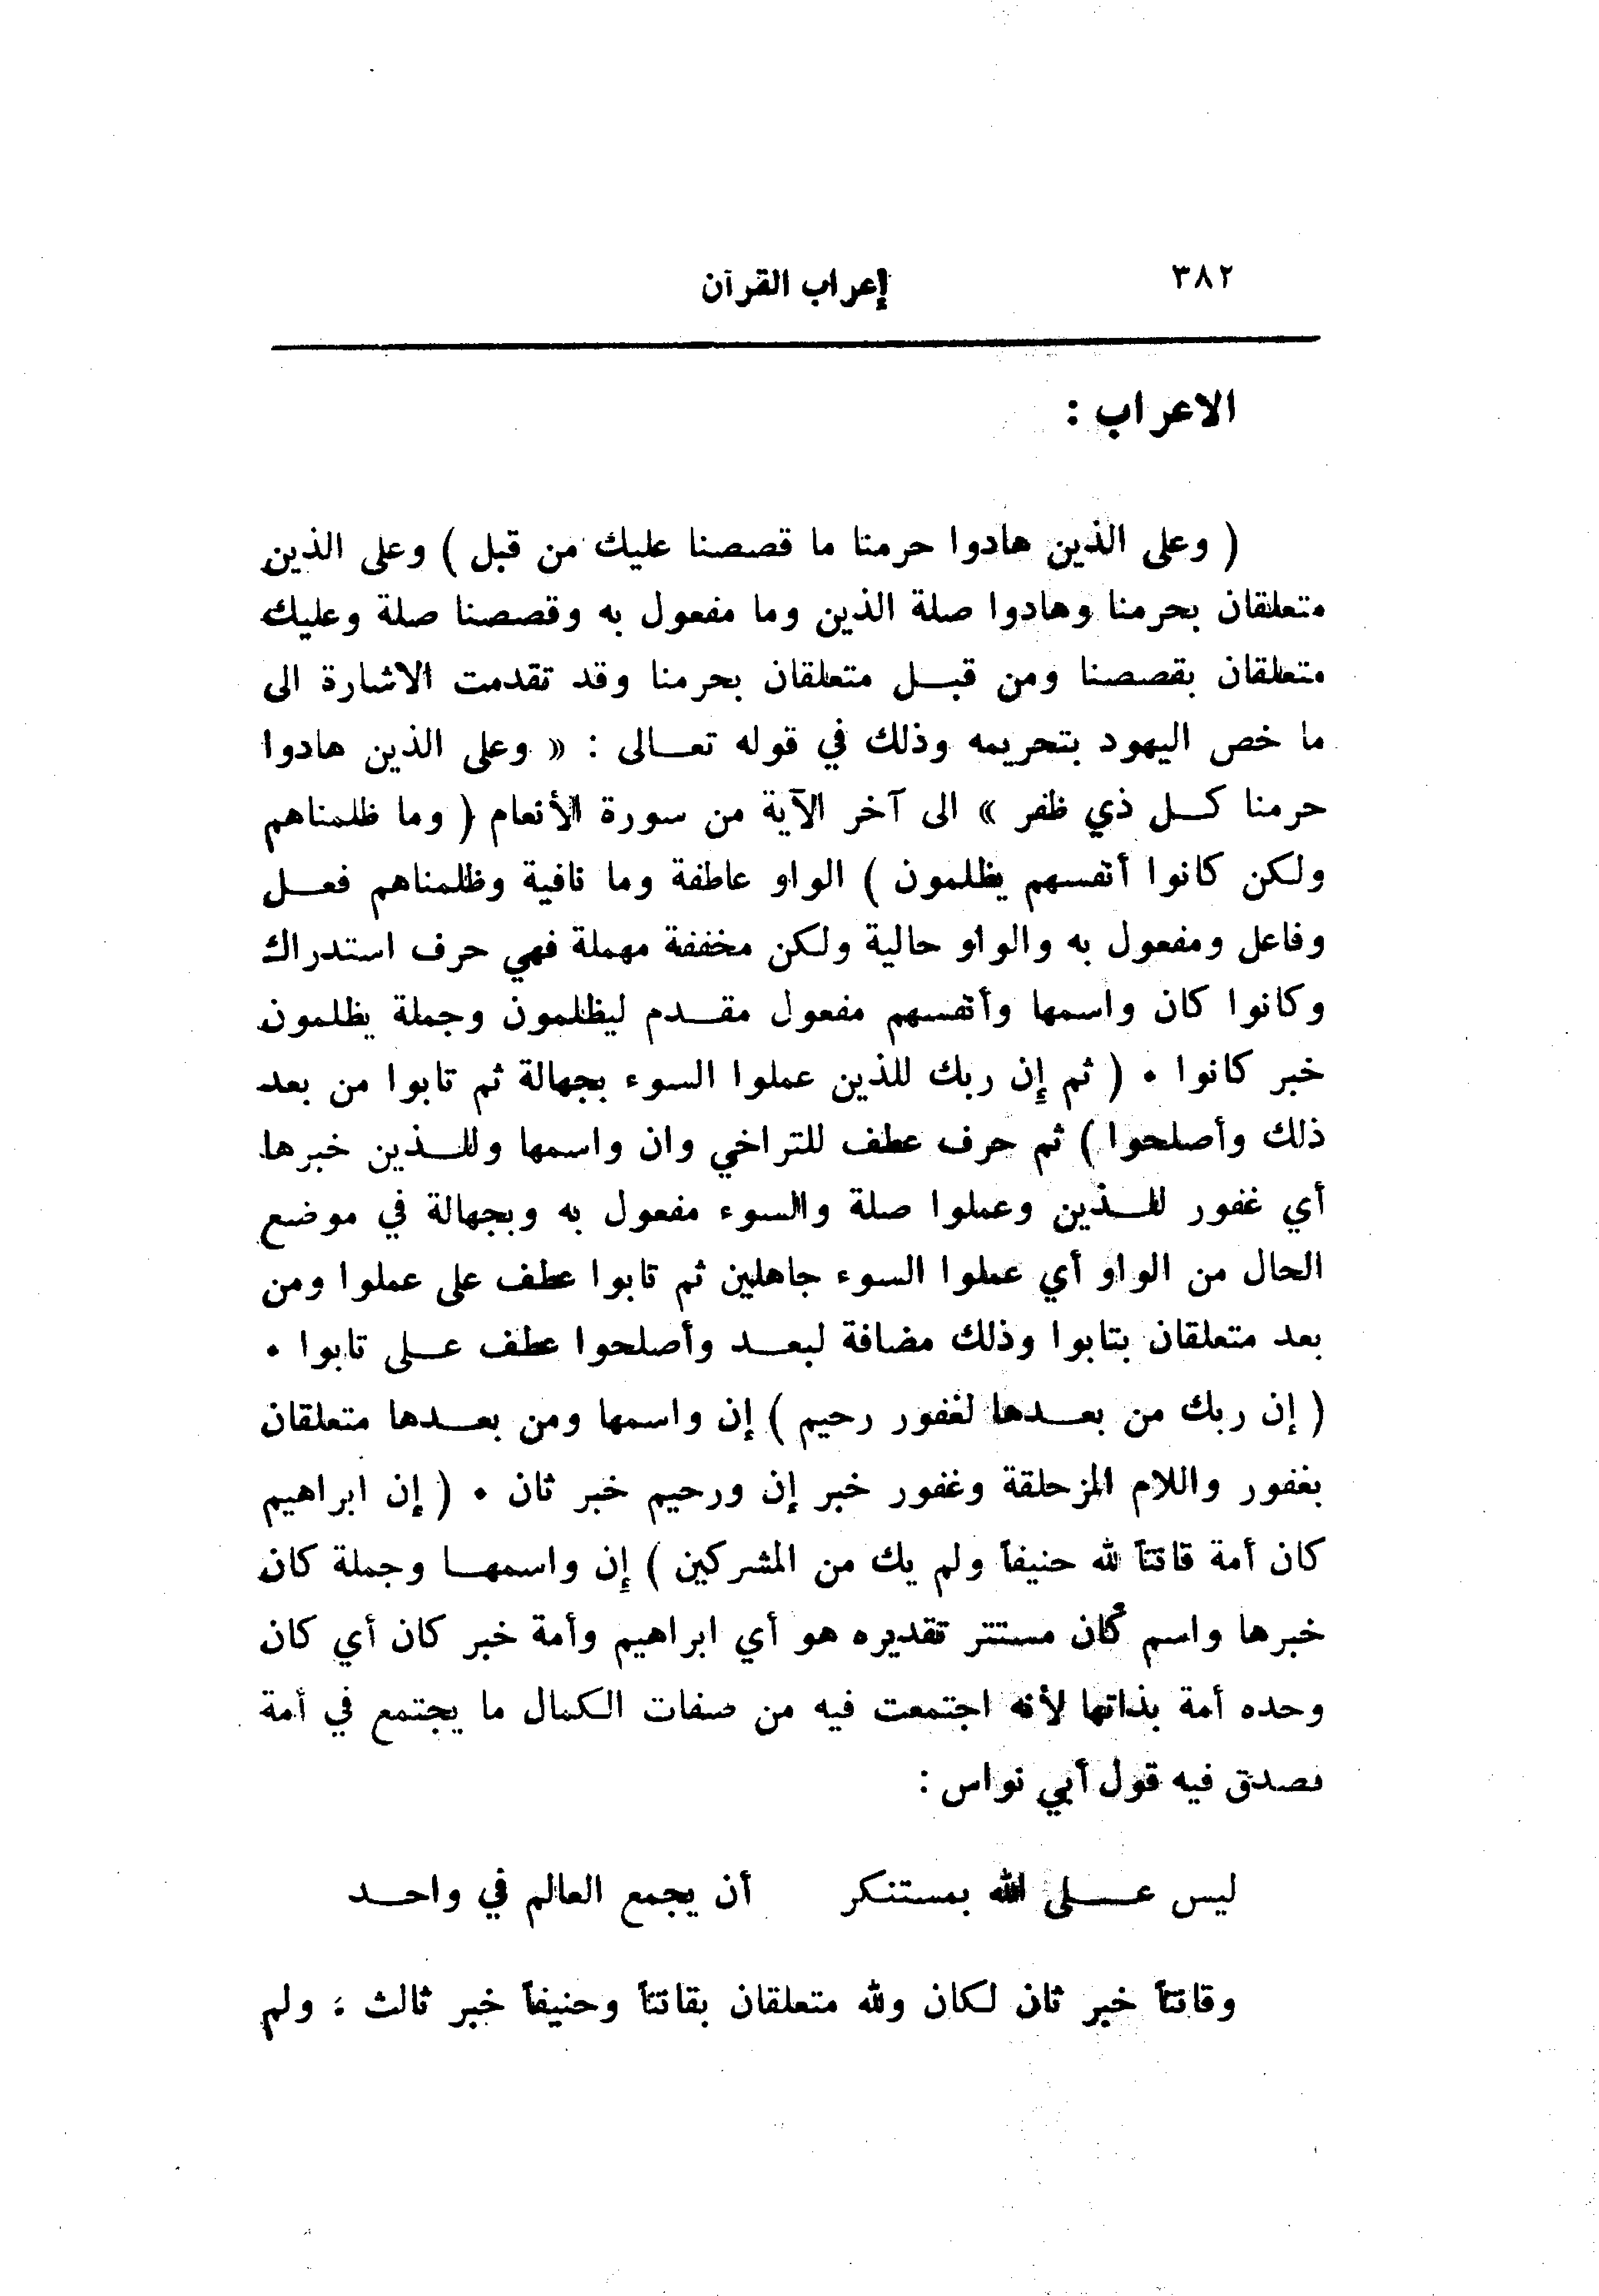 ٣٨٢
إعراب القرآن
الاعراب :
( وعلى الذين هادوا حرمنا ما قصصنا عليك من قبل ) وعلى الذين
متعلقان بحرمنا وهادوا صلة الذين وما مفعول به وقصصنا صلة وعليك
متعلقان بقصصنا ومن قبل متعلقان بحرمنا وقد تقدمت الاشارة الى
ما خص اليهود بتحريمه وذلك في قوله تعالى : « وعلى الذين هادوا
حرمنا كل ذي ظفر » الى آخر الآية من سورة الأنعام ( وما ظلمناهم
ولكن كانوا أنفسهم يظلمون ) الواو عاطفة وما نافية وظلمناهم فعل
وفاعل ومفعول به والواو حالية ولكن مخففة مهملة فهي حرف استدراك
وكانوا كان واسمها وأنفسهم مفعول مقدم ليظلمون وجملة يظلمون
خبر كانوا . ( ثم إن ربك للذين عملوا السوء بجهالة ثم تابوا من بعد
ذلك وأصلحوا ) ثم حرف عطف للتراخي وان واسمها وللذين خبرها
أي غفور للذين وعملوا صلة والسوء مفعول به وبجهالة في موضع
الحال من الواو أي عملوا السوء جاهلين ثم تابوا عطف على عملوا ومن
بعد متعلقان بتابوا وذلك مضافة لبعد وأصلحوا عطف على تابوا .
( إن ربك من بعدها لغفور رحيم ) إن واسمها ومن بعدها متعلقان
بغفور واللام المزحلقة وغفور خبر إن ورحيم خبر ثان . ( إن ابراهيم
كان أمة قانتاً لله حنيفاً ولم يك من المشركين ) إن واسمها وجملة كان
خبرها واسم كان مستتر تقديره هو أي ابراهيم وأمة خبر كان أي كان
وحده أمة بذاتها لأنه اجتمعت فيه من صفات الكمال ما يجتمع في أمة
فصدق فيه قول أبي نواس :
ليس على الله بمستنكر أن يجمع العالم في واحد
وقانتاً خبر ثان لكان ولله متعلقان بقانتاً وحنيفاً خبر ثالث ، ولم